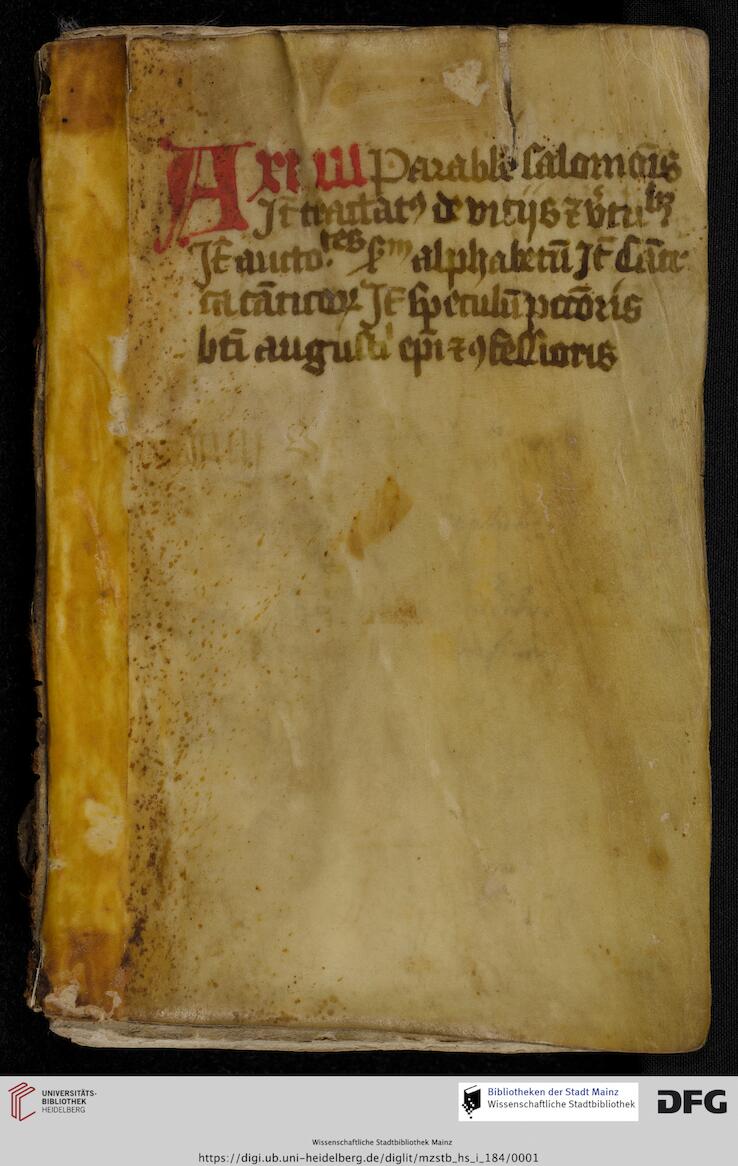 A xviii Parabl̄e salomōis
Jt̄ tractatꝯ de vitijs ⁊ v̓tutibꝫ
Jt̄ auctoꝛ.tes s̄m alphabetū Jt̄ Cāti
ca cāticoꝝ Jt̄ speculū pctōris
bt̄i augustī ep̄i ⁊ ꝯfessioris
UNIVERSITÄTS-
BIBLIOTHEK
HEIDELBERG
Bibliotheken der Stadt Mainz
Wissenschaftliche Stadtbibliothek
DFG
Wissenschaftliche Stadtbibliothek Mainz
https://digi.ub.uni-heidelberg.de/diglit/mzstb_hs_i_184/0001